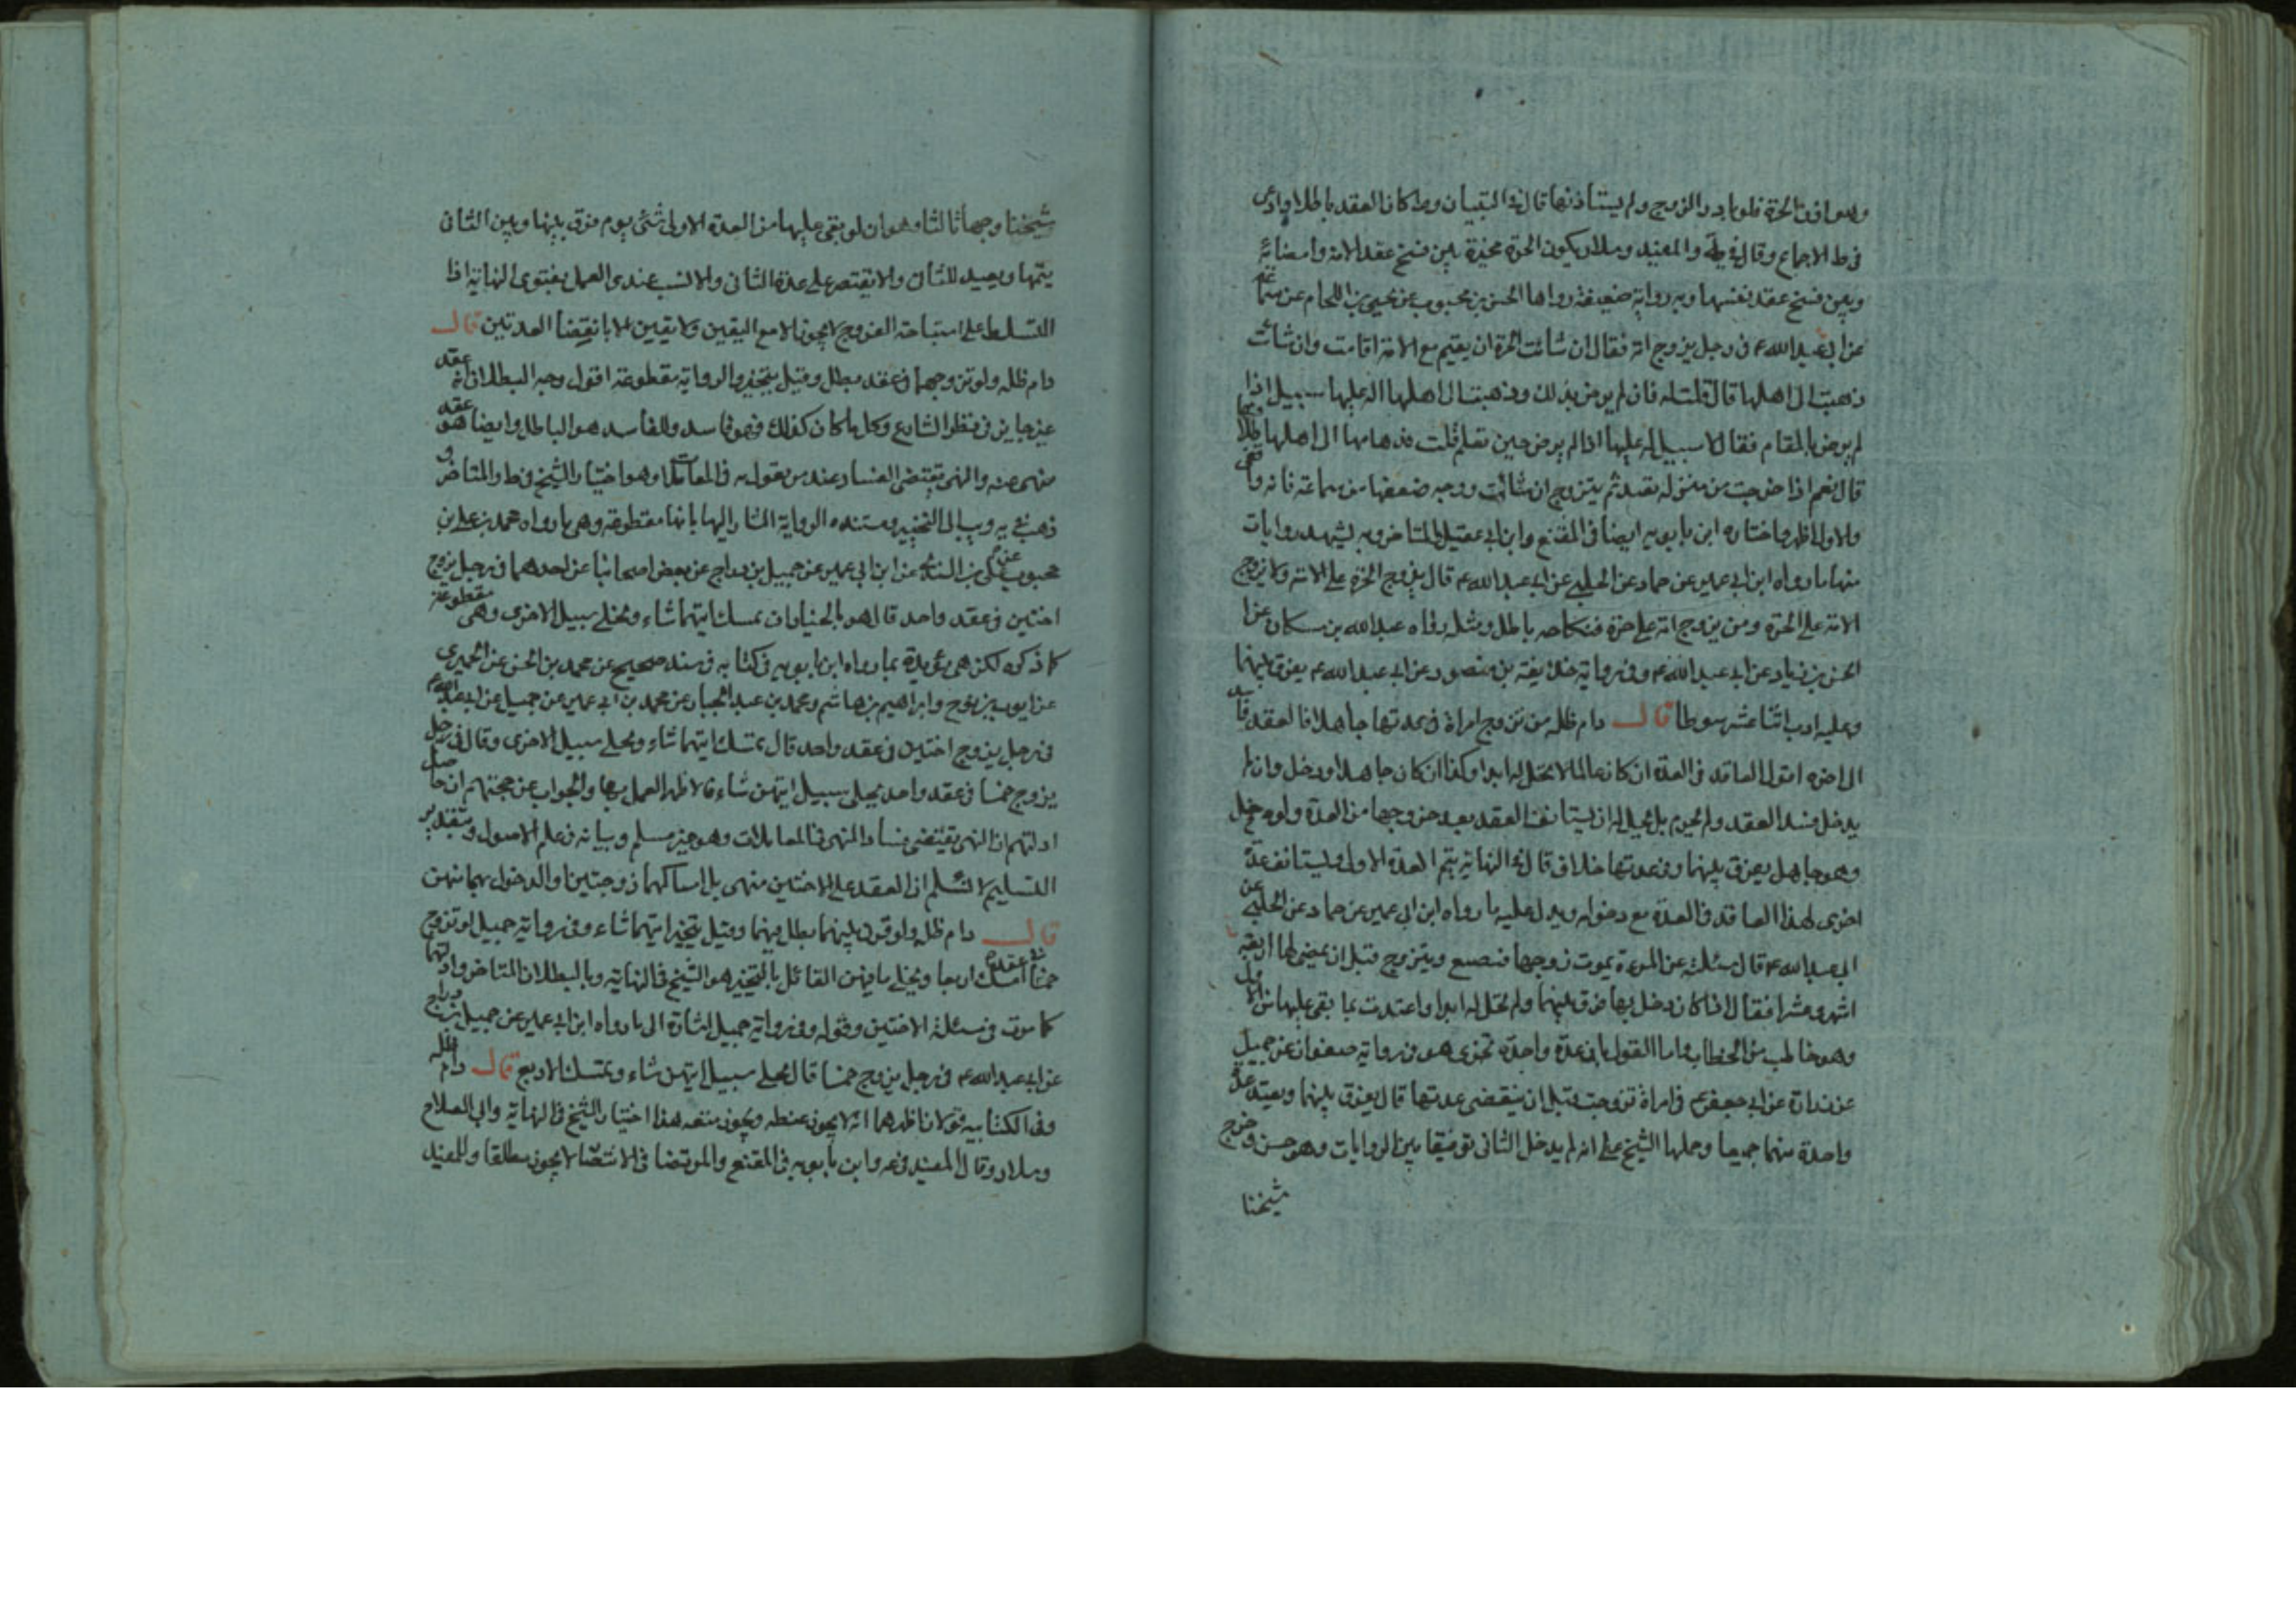 ولا اذن الحرة فلو بادر الزوج ولم يستأذنها قال في التبيان وط كان العقد باطلا وادعى
في ط الاجماع وقال في ية والمفيد وسلار يكون الحرة مخيرة بين فسخ عقد الامة وامضائه
وبين فسخ عقد نفسها وبه رواية ضعيفة رواها الحسن بن محبوب عن يحيى بن اللحام عن سماعة
عن ابي عبد الله ع في رجل يزوج امة فقال ان شائت الحرة ان يقيم مع الامة اقامت وان شائت
ذهبت الى اهلها قال قلت له فان لم يرض بذلك وذهبت الى اهلها اله عليها سبيل اذا
لم يرض بالمقام فقال لا سبيل له عليها اذا لم يرض حين تعلم قلت فذهابها الى اهلها طلاقها
قال نعم اذا خرجت من منزله تعتد ثم يتزوج ان شائت ووجه ضعفها من سماعة فانه واقفي
والاول اظهر واختاره ابن بابويه ايضا في المقنع وابن ابي عقيل والمتاخر وبه يشهد روايات
منها ما رواه ابن ابي عمير عن حماد عن الحلبي عن ابي عبد الله ع قال يزوج الحرة على الامة ولا يزوج
الامة على الحرة ومن يزوج امة على حرة فنكاحه باطل ومثله رواه عبد الله بن مسكان عن
الحسن بن زياد عن ابي عبد الله ع وفي رواية حذيفة بن منصور عن ابي عبد الله ع يفرق بينهما
وعليه ادب اثنا عشر سوطا قال دام ظله من تزوج امراة في عدتها جاهلا فالعقد فاسد
الى اخره اقول العاقد في العدة ان كان عالما لا تحل له ابدا وكذا ان كان جاهلا ودخل وان لم
يدخل فسد العقد ولم تحرم بل تحل له ان يستانف العقد بعد خروجها من العدة ولو دخل
وهو جاهل يفرق بينهما وفي عدتها خلاف قال في النهاية يتم العدة الاولى وليستانف عدة
اخرى لهذا العاقد في العدة مع دخوله ويدل عليه ما رواه ابن ابي عمير عن حماد عن الحلبي عن
ابي عبد الله ع قال سئلته عن المرءة يموت زوجها فتضع ويتزوج قبل ان يمضي لها اربعة
اشهر وعشرا فقال اذا كان دخل بها فرق بينهما ولم تحل له ابدا واعتدت بما بقي عليها من الاول
وهو مخاطب من الخطاب واما القول بان عدة واحدة تجزي هو في رواية صفوان عن جميل
عن زرارة عن ابي جعفر ع في امراة تزوجت قبل ان ينقضي عدتها قال يفرق بينهما ويعتد عدة
واحدة منهما جميعا وحملها الشيخ على انه لم يدخل الثاني توفيقا بين الروايات وهو حسن وخرج
شيخنا
شيخنا وجها ثالثا وهو ان لو بقي عليها من العدة الاولى شئ يوم فرق بينها وبين الثاني
يتمها ويعيد للثاني والا يقتصر على عدة الثاني والانسب عندي العمل بفتوى النهاية اذا
التسلط على استباحة الفروج لا يجوز الا مع اليقين ولا يقين الا بانقضاء العدتين قال
دام ظله ولو تزوجهما في عقد بطل وقيل يتخير والرواية مقطوعة اقول وجه البطلان انه عقد
غير جايز في نظر الشارع وكل ما كان كذلك فهو فاسد والفاسد هو الباطل وايضا هو عقد
منهى عنه والنهى يقتضي الفساد عند من يقول به في المعاملات وهو اختيار الشيخ في ط والمتاخر و
ذهب في ية ويب الى التخيير ومستنده الرواية المشار اليها بانها مقطوعة وهي ما رواه محمد بن علي بن
محبوب عن علي بن السندي عن ابن ابي عمير عن جميل بن دراج عن بعض اصحابنا عن احدهما في رجل يزوج
اختين في عقد واحد قال هو بالخيار ان يمسك ايتهما شاء ويخلي سبيل الاخرى وهي مقطوعة
كما ذكره لكن هي مؤيدة بما رواه ابن بابويه في كتابه في سند صحيح عن محمد بن الحسن عن الحميري
عن ايوب بن نوح وابراهيم بن هاشم ومحمد بن عبد الجبار عن محمد بن ابي عمير عن جميل عن ابي عبد الله ع
في رجل يزوج اختين في عقد واحد قال يمسك ايتهما شاء ويخلي سبيل الاخرى وقال في رجل
يزوج خمسا في عقد واحد يخلي سبيل ايتهن شاء فالاظهر العمل بها والجواب عن حجتهم ان حاصل
ادلتهم ان النهى يقتضي فساد المنهى في المعاملات وهو غير مسلم وبيانه في علم الاصول وبتقدير
التسليم لا نسلم ان العقد على الاختين منهى بل امساكهما زوجتين والدخول بهما منهى
قال دام ظله ولو قرن بينهما بطل فيهما وقيل يتخير ايتهما شاء وفي رواية جميل لو تزوج
خمسا في عقدة امسك اربعا ويخلي باقيهن القائل بالتخيير هو الشيخ في النهاية وبالبطلان المتاخر وادلتهما
كما مرت في مسئلة الاختين وقوله وفي رواية جميل اشارة الى ما رواه ابن ابي عمير عن جميل بن دراج
عن ابي عبد الله ع في رجل يزوج خمسا قال يخلي سبيل ايتهن شاء ويمسك الاربع قال دام ظله
وفي الكتابية قولان اظهرهما انه لا يجوز غبطة ويجوز متعة هذا اختيار الشيخ في النهاية وابي الصلاح
وسلار وقال المفيد في عه وابن بابويه في المقنع والمرتضى في الانتصار لا يجوز مطلقا وللمفيد